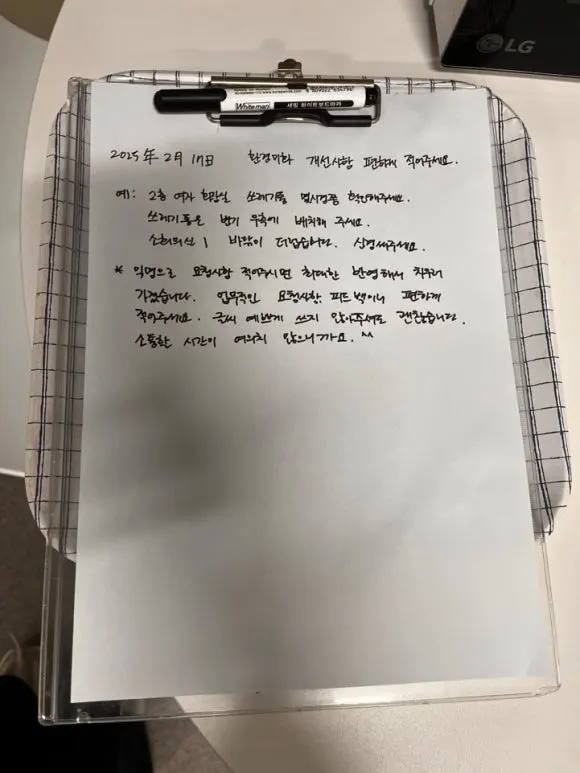 LG
8809022 634796
Whiteman 세필 화이트보드마카
2025年 2月 17日 환경미화 개선사항 편하게 적어주세요.
예: 2층 여자 화장실 쓰레기통 넘시경쯤 확인해주세요.
쓰레기통은 변기 우측에 배치해 주세요.
소회의실 1 바닥이 더럽습니다. 신경써주세요.
* 익명으로 요청사항 적어주시면 최대한 반영해서 치우러
가겠습니다. 업무적인 요청사항, 피드백이니 편하게
적어주세요. 글씨 예쁘게 쓰지 않아주셔도 괜찮습니다.
소통할 시간이 여의치 않으니까요. ^^